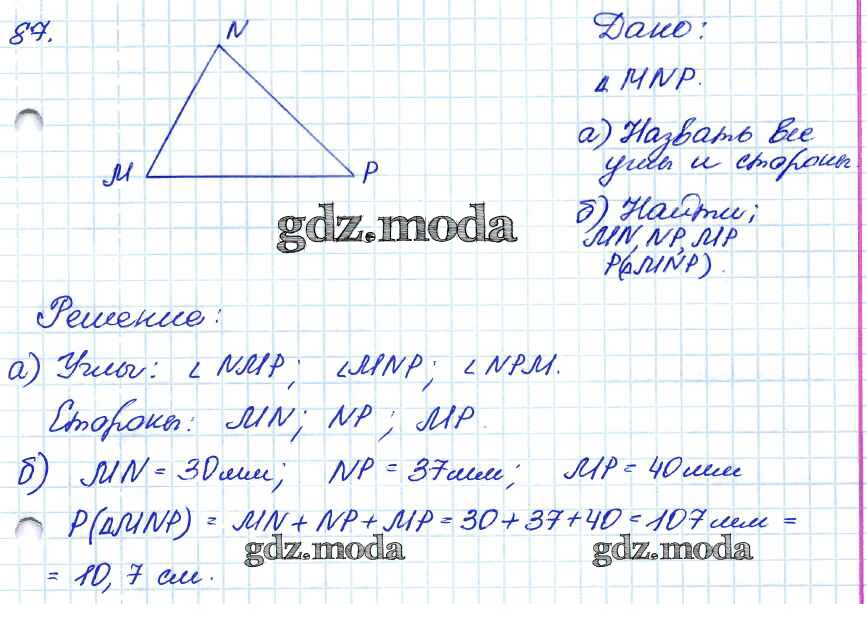 87.
N
M
P
Дано:
△ MNP.
а) Назвать все
углы и стороны.
б) Найти;
MN, NP, MP
P(△MNP).
gdz.moda
Решение:
а) Углы: ∠ NMP; ∠MNP; ∠ NPM.
Стороны: MN; NP; MP.
б) MN = 30мм; NP = 37мм; MP = 40мм
P(△MNP) = MN + NP + MP = 30 + 37 + 40 = 107 мм =
gdz.moda
gdz.moda
= 10,7 см.